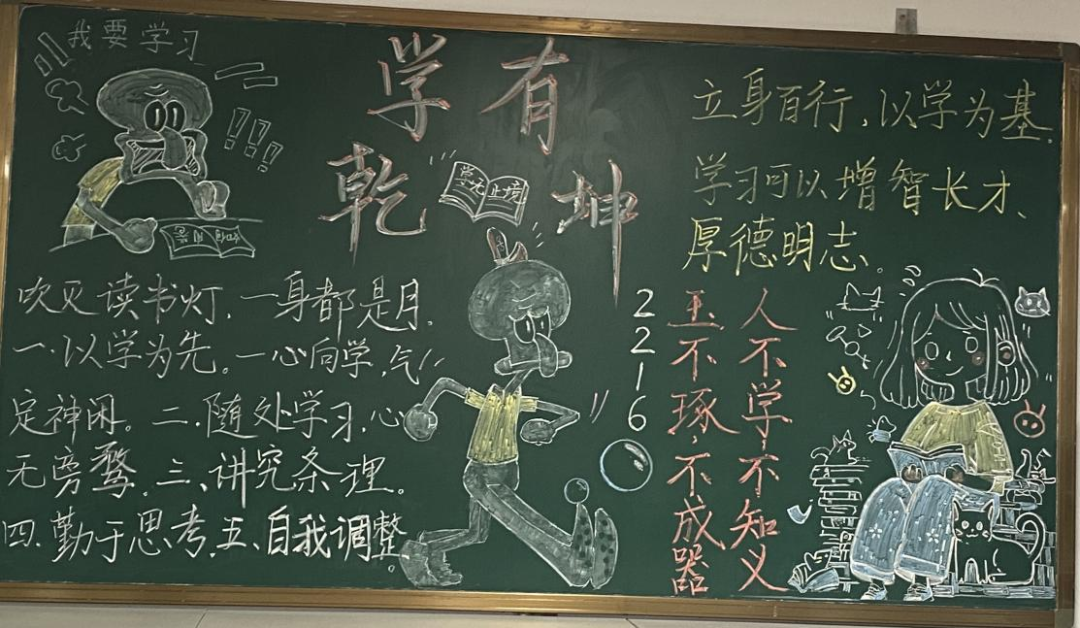 我要学习
学有
乾坤
学无止境
立身百行，以学为基。
学习可以增智长才、
厚德明志。
吹灭读书灯，一身都是月，
一、以学为先。一心向学，气
定神闲。二、随处学习，心
无旁骛。三、讲究条理。
四、勤于思考。五、自我调整。
2216
玉不琢，不成器
人不学，不知义